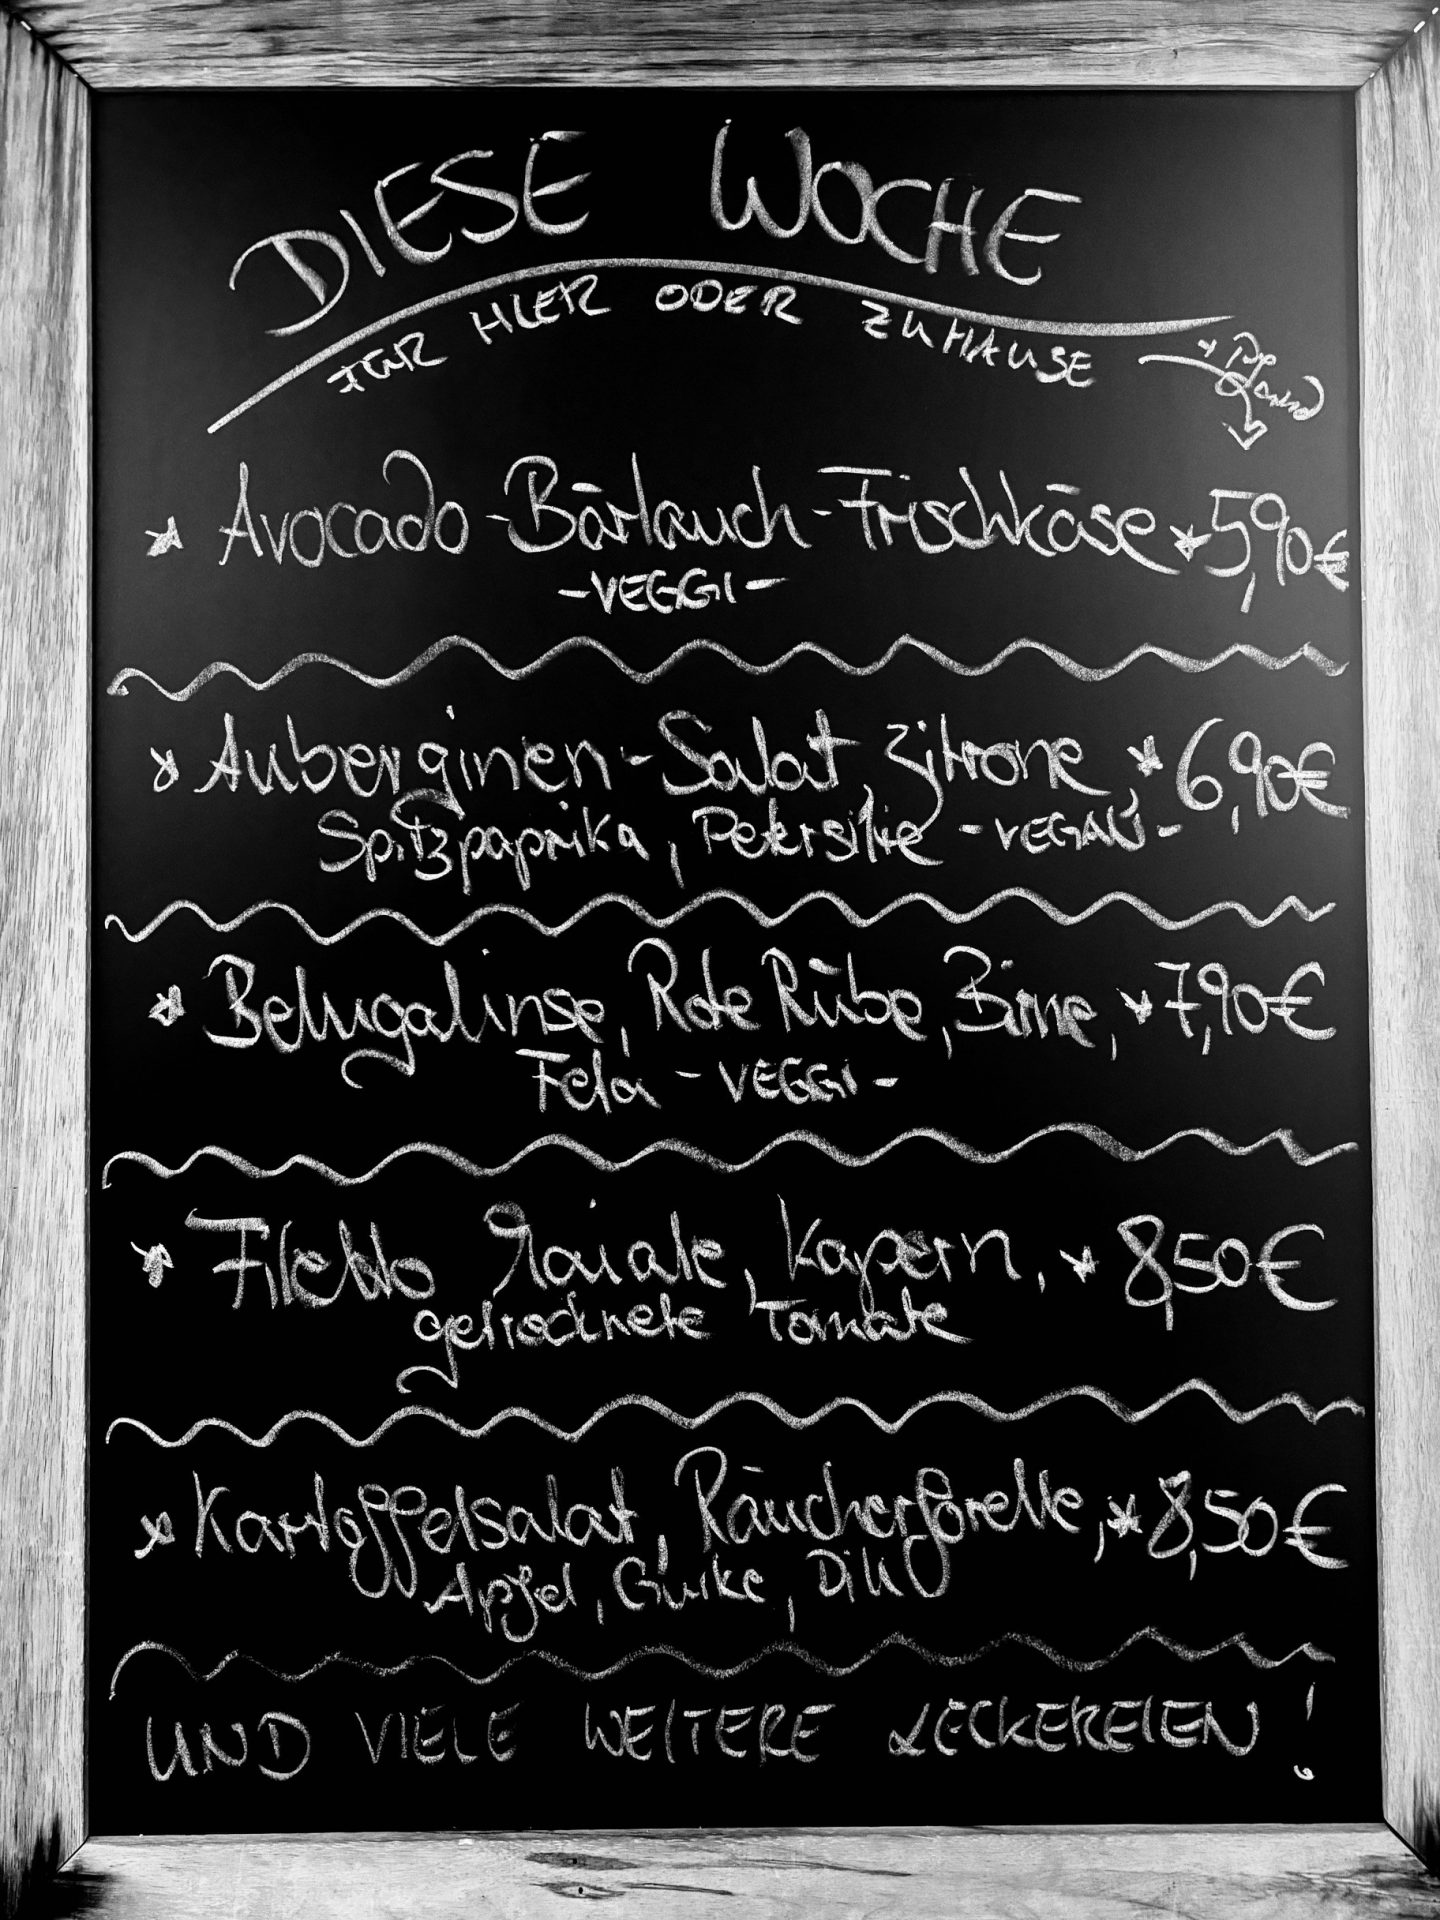 DIESE WOCHE
FÜR HIER ODER ZUHAUSE
+ Pfand
* Avocado-Bärlauch-Frischkäse * 5,90€
-VEGGI-
* Auberginen-Salat, Zitrone, * 6,90€
Spitzpaprika, Petersilie -VEGAN-
* Belugalinse, Rote Rübe, Birne, * 7,90€
Feta -VEGGI-
* Filetto, Rouiate, Kapern, * 8,50€
getrocknete Tomate
* Kartoffelsalat, Räucherforelle, * 8,50€
Apfel, Gurke, Dill
UND VIELE WEITERE LECKEREIEN!